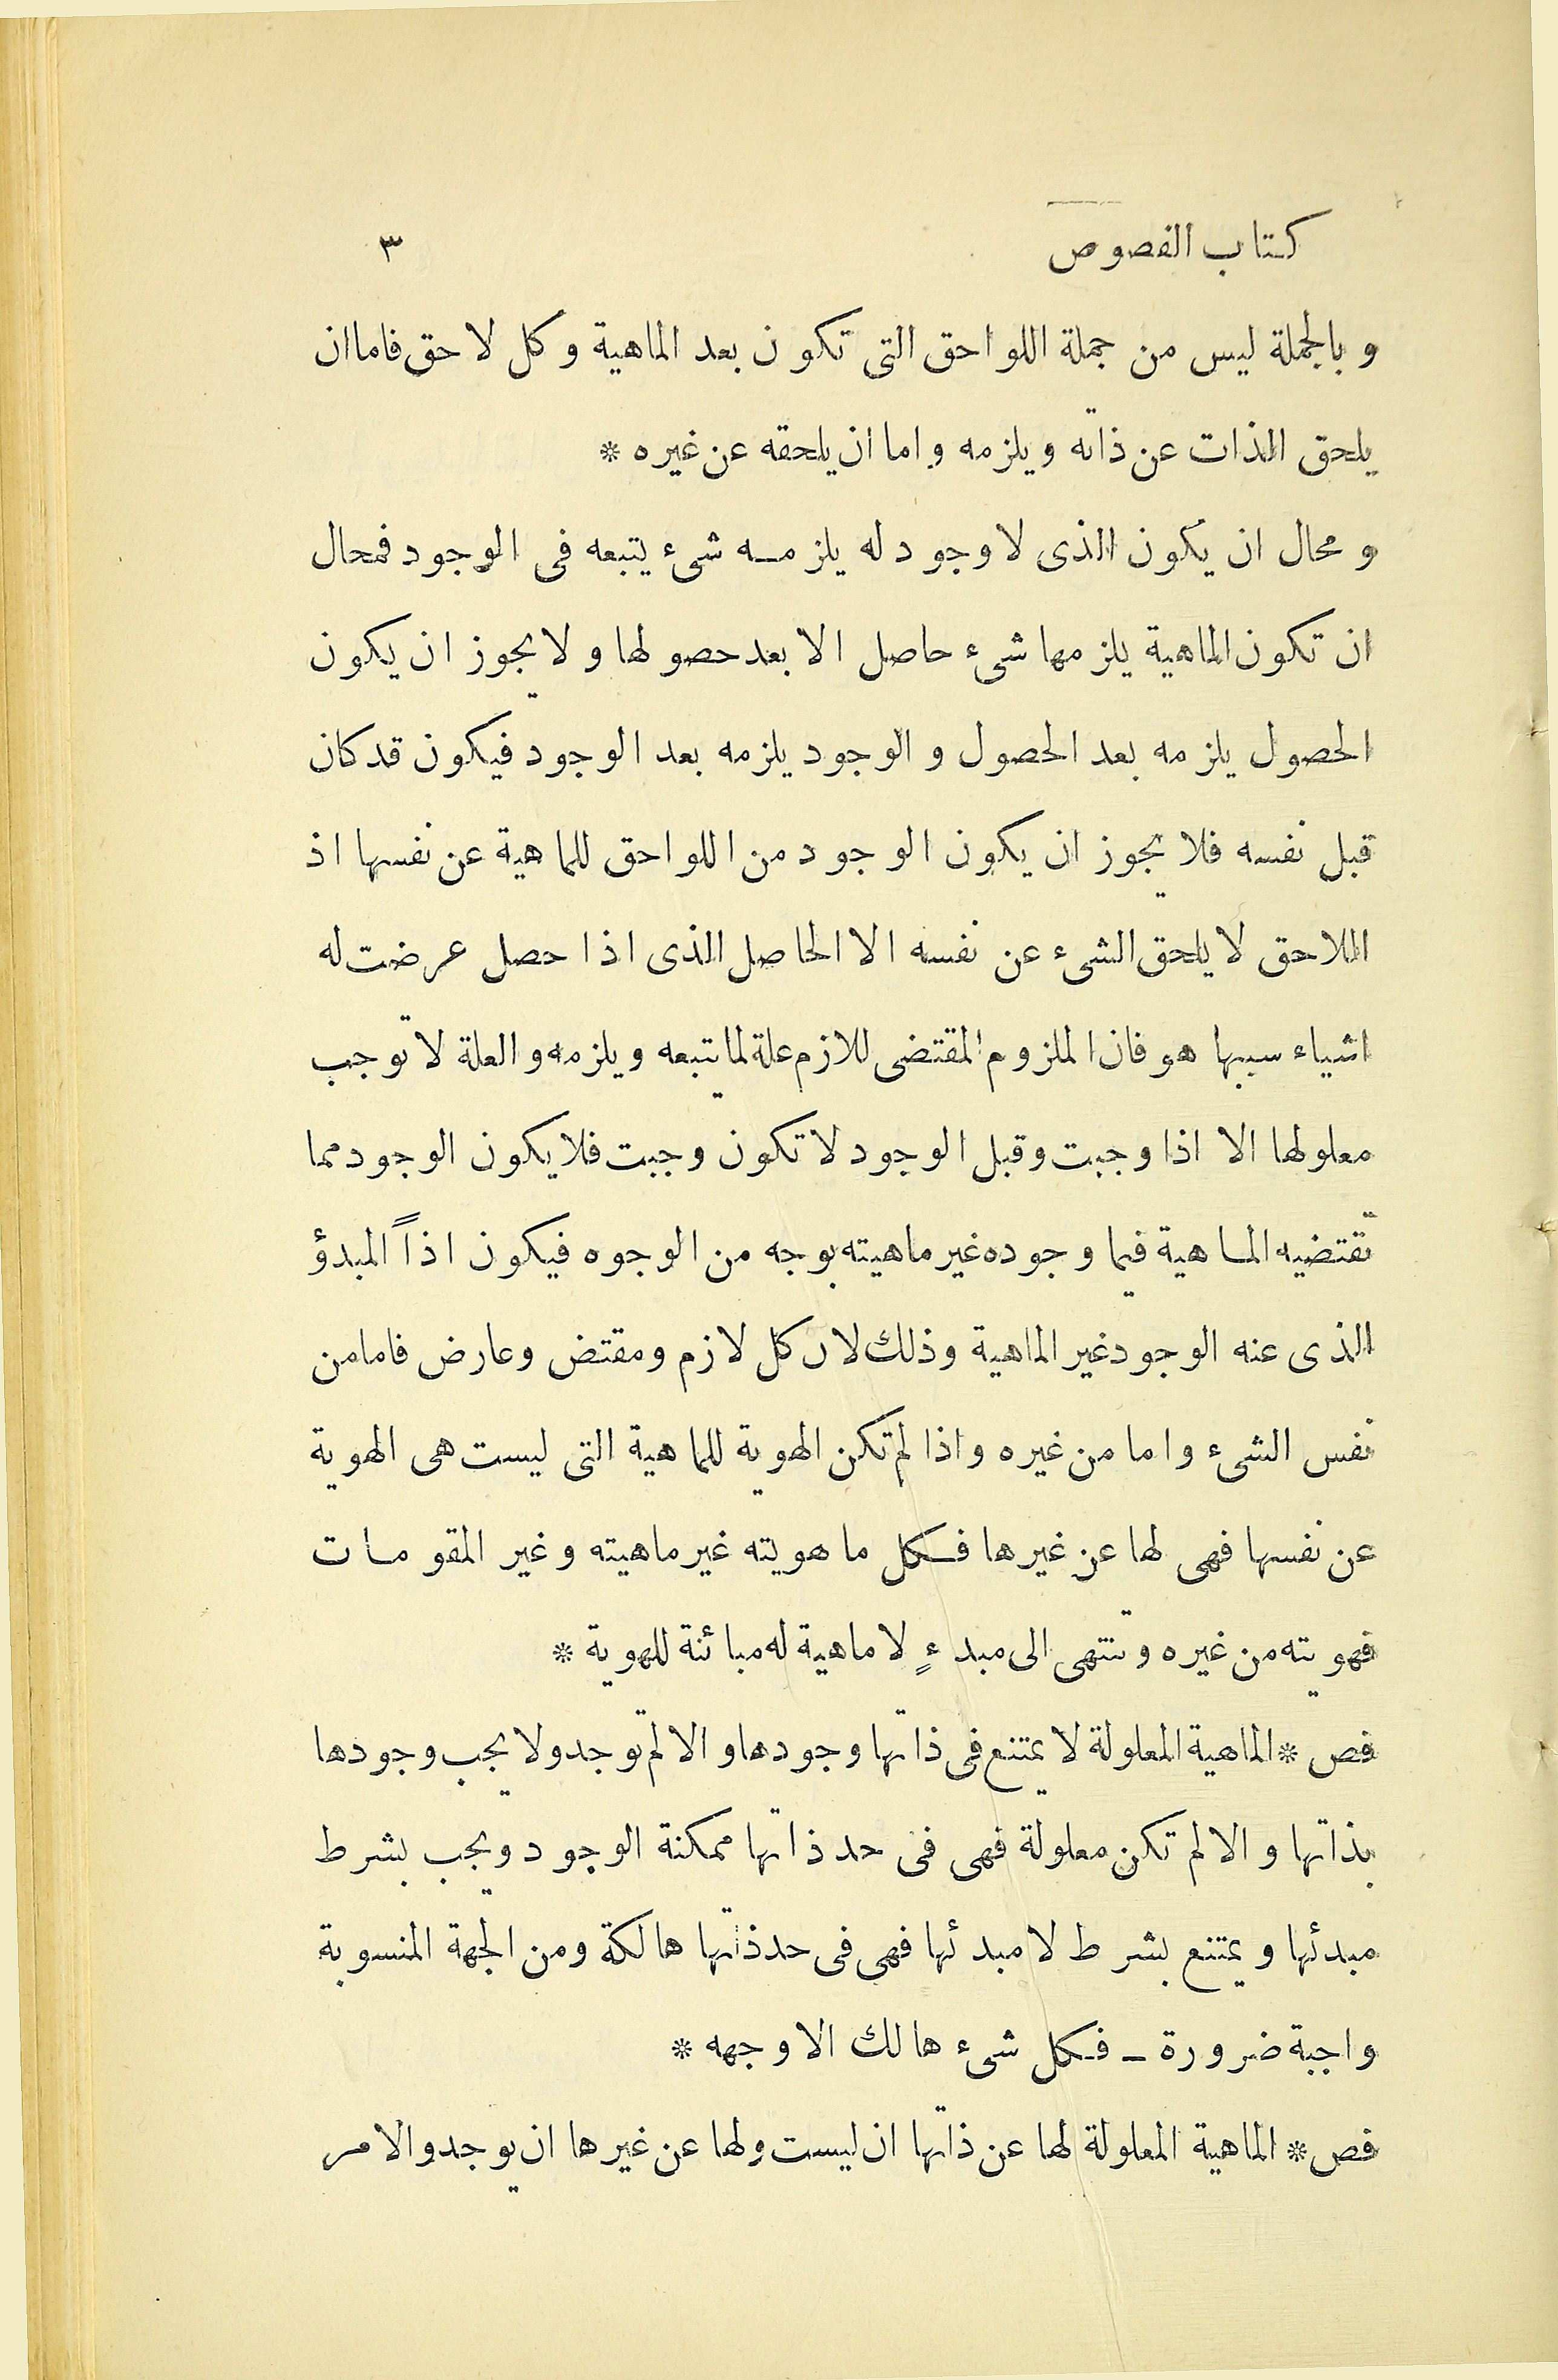 كتاب الفصوص ٣
و بالجملة ليس من جملة اللواحق التى تكون بعد الماهية و كل لاحق فاما ان
يلحق الذات عن ذاته ويلزمه و اما ان يلحقه عن غيره *
و محال ان يكون الذى لا وجود له يلزمه شىء يتبعه فى الوجود فمحال
ان تكون الماهية يلزمها شىء حاصل الا بعد حصولها و لا يجوز ان يكون
الحصول يلزمه بعد الحصول و الوجود يلزمه بعد الوجود فيكون قد كان
قبل نفسه فلا يجوز ان يكون الوجود من اللواحق للماهية عن نفسها اذ
اللاحق لا يلحق الشىء عن نفسه الا الحاصل الذى اذا حصل عرضت له
اشياء سببها هو فان الملزوم المقتضى للازم علة لما يتبعه و يلزمه و العلة لا توجب
معلولها الا اذا وجبت وقبل الوجود لا تكون وجبت فلا يكون الوجود مما
تقتضيه الماهية فيما وجوده غير ماهيته بوجه من الوجوه فيكون اذاً المبدؤ
الذى عنه الوجود غير الماهية وذلك لان كل لازم ومقتض وعارض فاما من
نفس الشىء و اما من غيره و اذا لم تكن الهوية للماهية التى ليست هى الهوية
عن نفسها فهى لها عن غيرها فكل ما هويته غير ماهيته وغير المقومات
فهويته من غيره وتنتهى الى مبدءٍ لا ماهية له مبائنة للهوية *
فص * الماهية المعلولة لا يمتنع فى ذاتها وجودها و الا لم توجد ولا يجب وجودها
بذاتها و الا لم تكن معلولة فهى فى حد ذاتها ممكنة الوجود ويجب بشرط
مبدئها و يمتنع بشرط لا مبدئها فهى فى حد ذاتها هالكة ومن الجهة المنسوبة
واجبة ضرورة ـ فكل شىء هالك الا وجهه *
فص * الماهية المعلولة لها عن ذاتها ان ليست ولها عن غيرها ان يوجد والامر